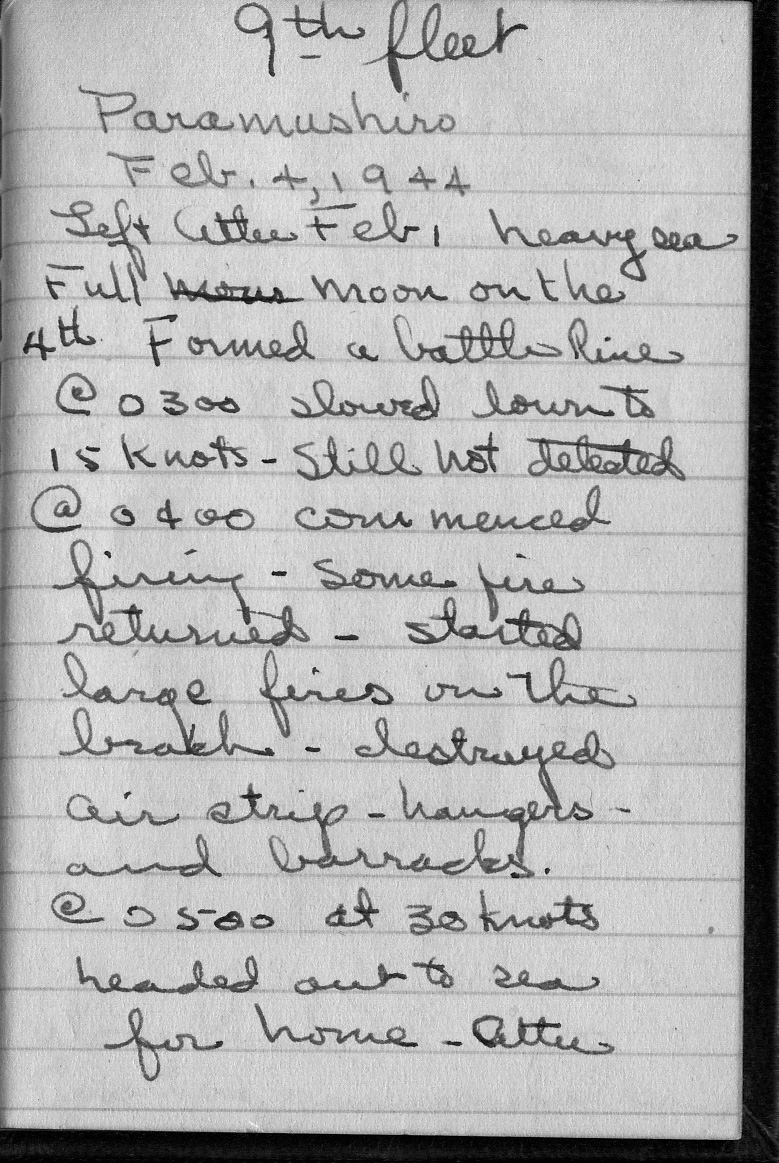 9th fleet
Paramushiro
Feb. 4, 1944
Left Attu Feb 1 heavy sea
Full moon on the
4th Formed a battle line
@ 0300 slowed down to
15 knots - Still not detected
@ 0400 commenced
firing - some fire
returned - started
large fires on the
beach - destroyed
air strip - hangers -
and barracks.
@ 0500 at 30 knots
headed out to sea
for home - Attu